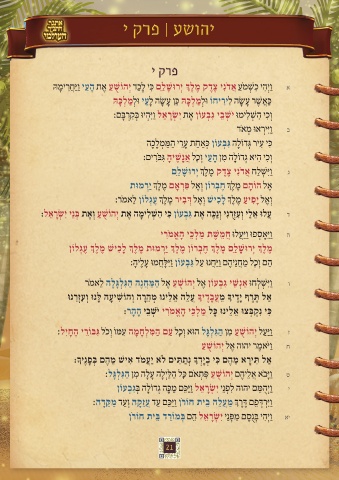 יהושע | פרק י
אתגר
התנ"ך
העולמי
פרק י
א וַיְהִי כִשְׁמֹעַ אֲדֹנִי צֶדֶק מֶלֶךְ יְרוּשָׁלִַם כִּי לָכַד יְהוֹשֻׁעַ אֶת הָעַי וַיַּחֲרִימָהּ
כַּאֲשֶׁר עָשָׂה לִירִיחוֹ וּלְמַלְכָּהּ כֵּן עָשָׂה לָעַי וּלְמַלְכָּהּ
וְכִי הִשְׁלִימוּ יֹשְׁבֵי גִבְעוֹן אֶת יִשְׂרָאֵל וַיִּהְיוּ בְּקִרְבָּם:
ב וַיִּירְאוּ מְאֹד
כִּי עִיר גְּדוֹלָה גִּבְעוֹן כְּאַחַת עָרֵי הַמַּמְלָכָה
וְכִי הִיא גְדוֹלָה מִן הָעַי וְכָל אֲנָשֶׁיהָ גִּבֹּרִים:
ג וַיִּשְׁלַח אֲדֹנִי צֶדֶק מֶלֶךְ יְרוּשָׁלִַם
אֶל הוֹהָם מֶלֶךְ חֶבְרוֹן וְאֶל פִּרְאָם מֶלֶךְ יַרְמוּת
וְאֶל יָפִיעַ מֶלֶךְ לָכִישׁ וְאֶל דְּבִיר מֶלֶךְ עֶגְלוֹן לֵאמֹר:
ד עֲלוּ אֵלַי וְעִזְרֻנִי וְנַכֶּה אֶת גִּבְעוֹן כִּי הִשְׁלִימָה אֶת יְהוֹשֻׁעַ וְאֶת בְּנֵי יִשְׂרָאֵל:
ה וַיֵּאָסְפוּ וַיַּעֲלוּ חֲמֵשֶׁת מַלְכֵי הָאֱמֹרִי
מֶלֶךְ יְרוּשָׁלִַם מֶלֶךְ חֶבְרוֹן מֶלֶךְ יַרְמוּת מֶלֶךְ לָכִישׁ מֶלֶךְ עֶגְלוֹן
הֵם וְכָל מַחֲנֵיהֶם וַיַּחֲנוּ עַל גִּבְעוֹן וַיִּלָּחֲמוּ עָלֶיהָ:
ו וַיִּשְׁלְחוּ אַנְשֵׁי גִבְעוֹן אֶל יְהוֹשֻׁעַ אֶל הַמַּחֲנֶה הַגִּלְגָּלָה לֵאמֹר
אַל תֶּרֶף יָדֶיךָ מֵעֲבָדֶיךָ עֲלֵה אֵלֵינוּ מְהֵרָה וְהוֹשִׁיעָה לָּנוּ וְעָזְרֵנוּ
כִּי נִקְבְּצוּ אֵלֵינוּ כָּל מַלְכֵי הָאֱמֹרִי יֹשְׁבֵי הָהָר:
ז וַיַּעַל יְהוֹשֻׁעַ מִן הַגִּלְגָּל הוּא וְכָל עַם הַמִּלְחָמָה עִמּוֹ וְכֹל גִּבּוֹרֵי הֶחָיִל:
ח וַיֹּאמֶר יהוה אֶל יְהוֹשֻׁעַ
אַל תִּירָא מֵהֶם כִּי בְיָדְךָ נְתַתִּים לֹא יַעֲמֹד אִישׁ מֵהֶם בְּפָנֶיךָ:
ט וַיָּבֹא אֲלֵיהֶם יְהוֹשֻׁעַ פִּתְאֹם כָּל הַלַּיְלָה עָלָה מִן הַגִּלְגָּל:
י וַיְהֻמֵּם יהוה לִפְנֵי יִשְׂרָאֵל וַיַּכֵּם מַכָּה גְדוֹלָה בְּגִבְעוֹן
וַיִּרְדְּפֵם דֶּרֶךְ מַעֲלֵה בֵית חוֹרֹן וַיַּכֵּם עַד עֲזֵקָה וְעַד מַקֵּדָה:
יא וַיְהִי בְּנֻסָם מִפְּנֵי יִשְׂרָאֵל הֵם בְּמוֹרַד בֵּית חוֹרֹן
21